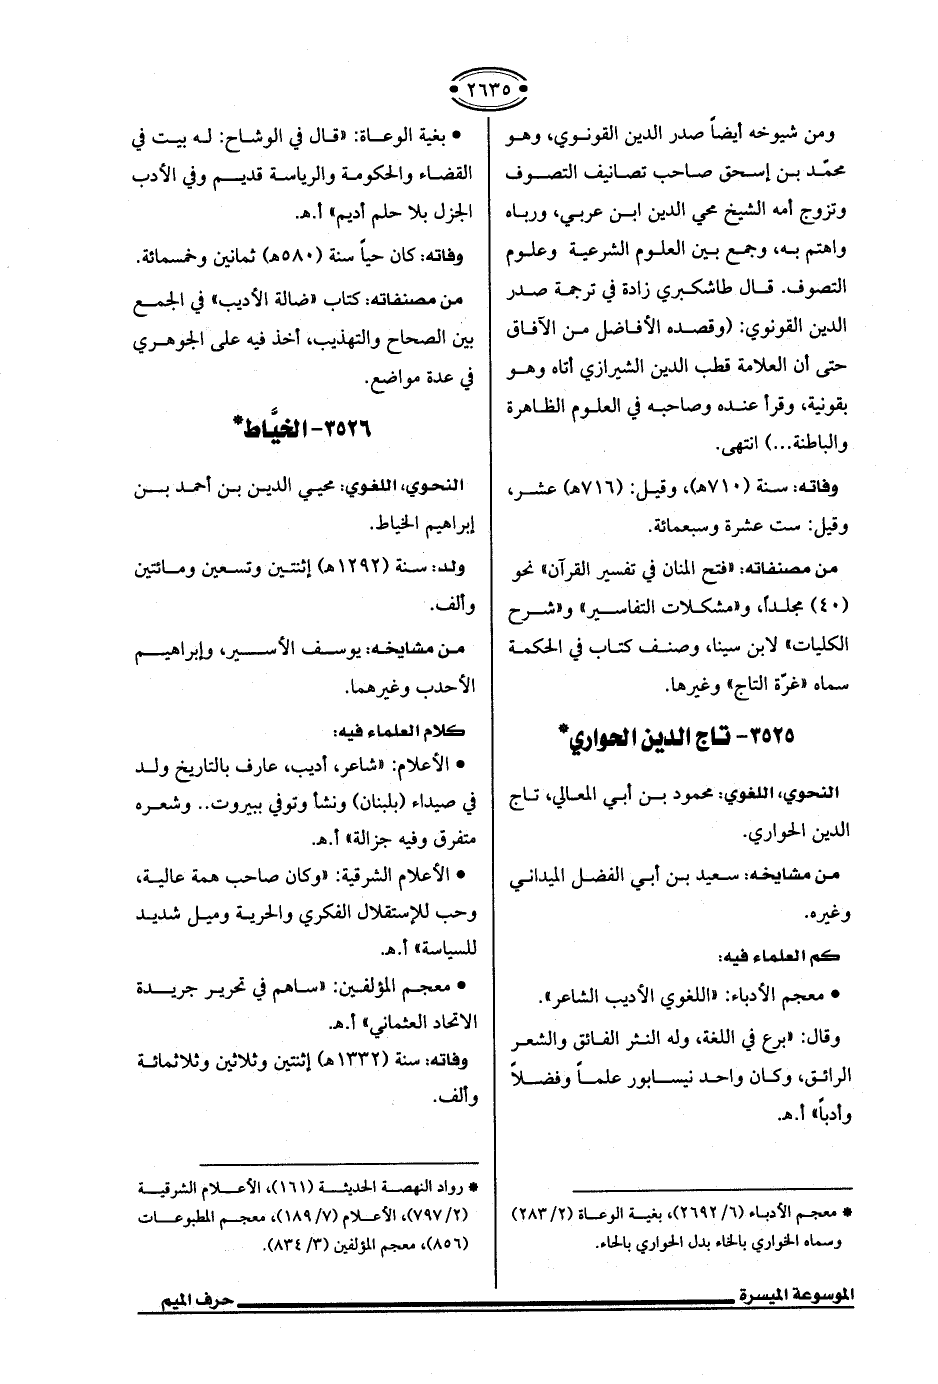 ٢٦٣٥
ومن شيوخه أيضاً صدر الدين القونوي، وهو
محمّد بن إسحق صاحب تصانيف التصوف
وتزوج أمه الشيخ محي الدين ابن عربي، ورباه
واهتم به، وجمع بين العلوم الشرعية وعلوم
التصوف. قال طاشكبري زادة في ترجمة صدر
الدين القونوي: (وقصده الأفاضل من الآفاق
حتى أن العلامة قطب الدين الشيرازي أتاه وهو
بقونية، وقرأ عنده وصاحبه في العلوم الظاهرة
والباطنة...) انتهى.
وفاته: سنة (٧١٠هـ)، وقيل: (٧١٦هـ) عشر،
وقيل: ست عشرة وسبعمائة.
من مصنفاته: «فتح المنان في تفسير القرآن» نحو
(٤٠) مجلداً، و«مشكلات التفاسير» و«شرح
الكليات» لابن سينا، وصنف كتاب في الحكمة
سماه «غرّة التاج» وغيرها.
٣٥٢٥- تاج الدين الحواري*
النحوي، اللغوي: محمود بن أبي المعالي، تاج
الدين الحواري.
من مشايخه: سعيد بن أبي الفضل الميداني
وغيره.
كم العلماء فيه:
• معجم الأدباء: «اللغوي الأديب الشاعر».
وقال: «برع في اللغة، وله النثر الفائق والشعر
الرائق، وكان واحد نيسابور علماً وفضلاً
وأدباً» أ.هـ.
* معجم الأدباء (٦/ ٢٦٩٢)، بغية الوعاة (٢/ ٢٨٣)
وسماه الخواري بالخاء بدل الحواري بالحاء.
• بغية الوعاة: «قال في الوشاح: له بيت في
القضاء والحكومة والرياسة قديم وفي الأدب
الجزل بلا حلم أديم» أ.هـ.
وفاته: كان حياً سنة (٥٨٠هـ) ثمانين وخمسائة.
من مصنفاته: كتاب «ضالة الأديب» في الجمع
بين الصحاح والتهذيب، أخذ فيه على الجوهري
في عدة مواضع.
٣٥٢٦- الخيَّاط*
النحوي، اللغوي: محيي الدين بن أحمد بن
إبراهيم الخياط.
ولد: سنة (١٢٩٢هـ) إثنتين وتسعين ومائتين
وألف.
من مشايخه: يوسف الأسير، وإبراهيم
الأحدب وغيرهما.
كلام العلماء فيه:
• الأعلام: «شاعر، أديب، عارف بالتاريخ ولد
في صيداء (بلبنان) ونشأ وتوفي ببيروت.. وشعره
متفرق وفيه جزالة» أ.هـ.
• الأعلام الشرقية: «وكان صاحب همة عالية،
وحب للإستقلال الفكري والحرية وميل شديد
للسياسة» أ.هـ.
• معجم المؤلفين: «ساهم في تحرير جريدة
الاتحاد العثماني» أ.هـ.
وفاته: سنة (١٣٣٢هـ) إثنتين وثلاثين وثلاثمائة
وألف.
* رواد النهضة الحديثة (١٦١)، الأعلام الشرقية
(٢/ ٧٩٧)، الأعلام (٧/ ١٨٩)، معجم المطبوعات
(٨٥٦)، معجم المؤلفين (٣/ ٨٣٤).
الموسوعة الميسرة حرف الميم